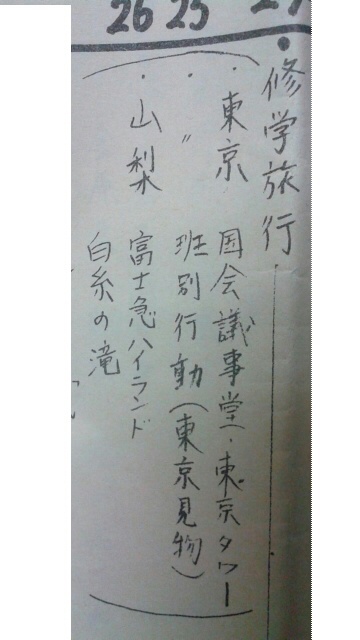 26 25
・修学旅行
・東京 国会議事堂、東京タワー
・〃 班別行動(東京見物)
・山梨 富士急ハイランド
白糸の滝